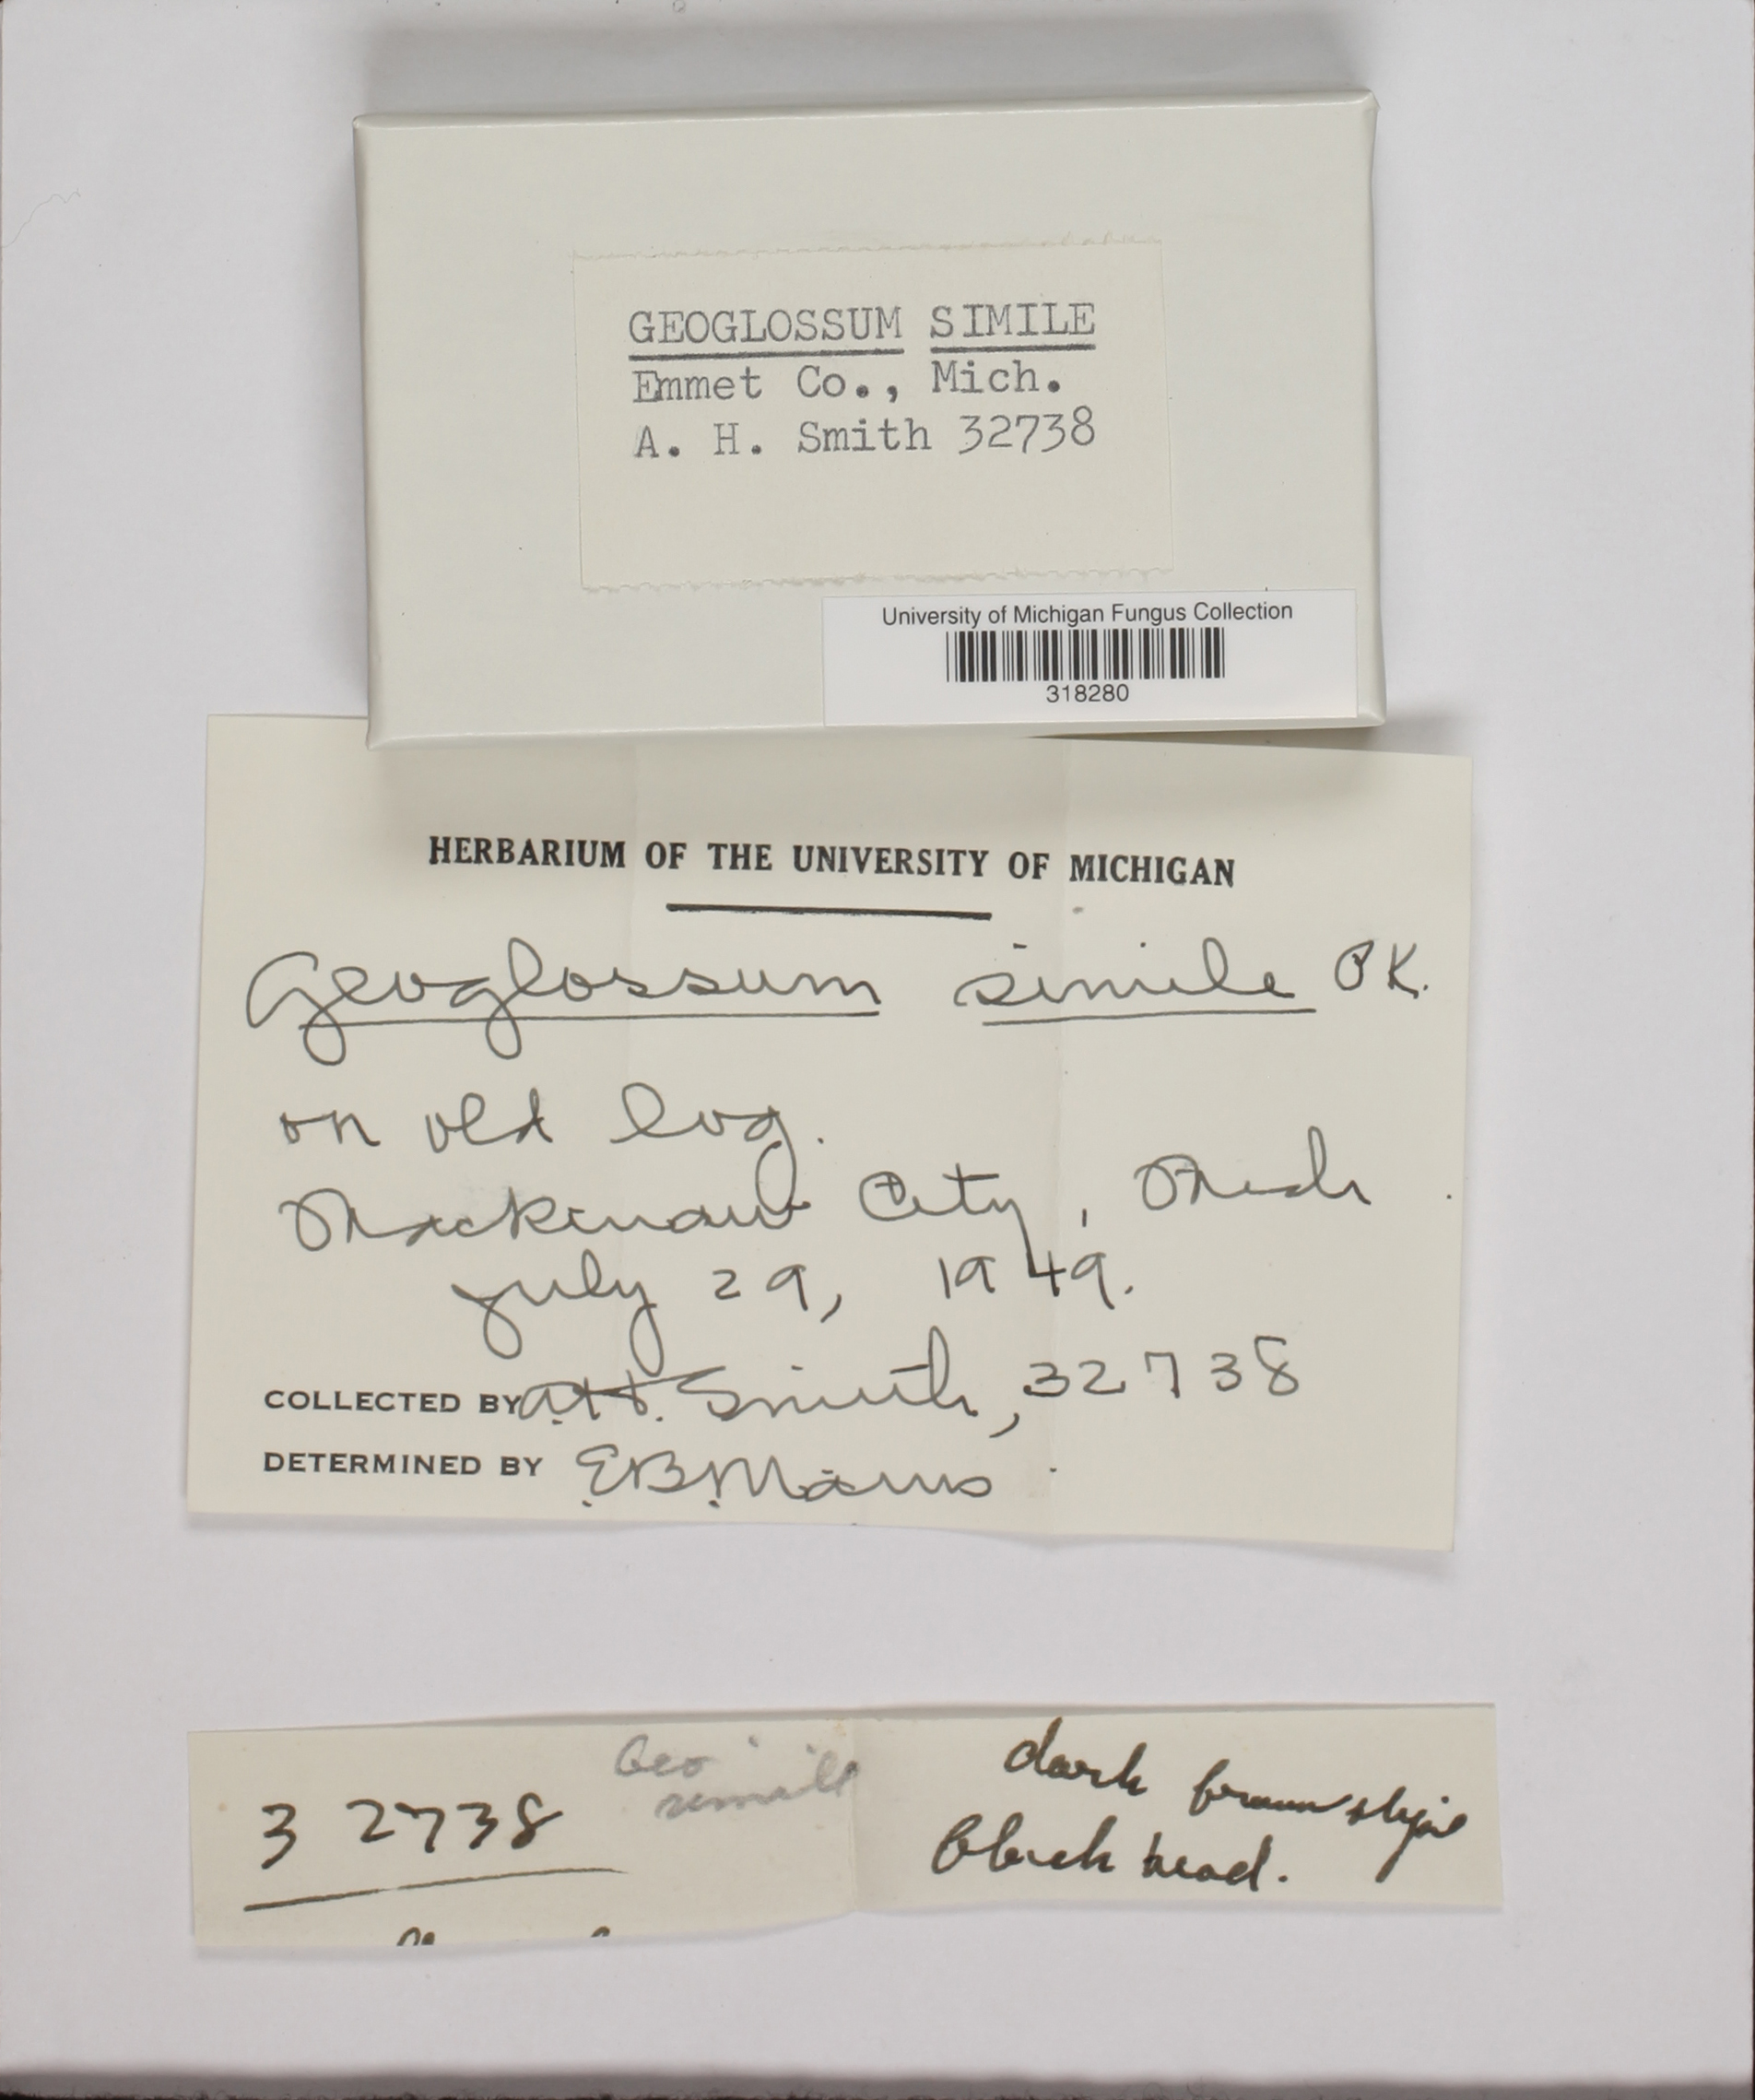 GEOGLOSSUM SIMILE
Emmet Co., Mich.
A. H. Smith 32738
University of Michigan Fungus Collection
318280
HERBARIUM OF THE UNIVERSITY OF MICHIGAN
Geoglossum simile PK.
on old log.
Mackinaw City, Mich.
July 29, 1949.
COLLECTED BY A.H. Smith, 32738
DETERMINED BY E.B. Mains
32738 Geo simile
dark brown stipe
black head.